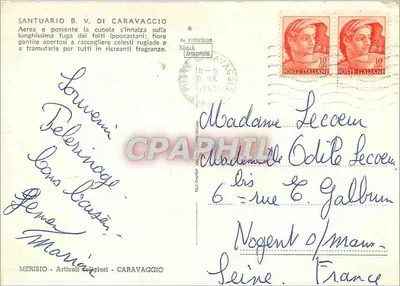 SANTUARIO B. V. DI CARAVAGGIO
Aerea e possente la cupola s'innalza sulla
lunghissima fuga dei folti ippocastani; fiore
gentile apertosi a raccogliere celesti rugiade e
a tramutarle per tutti in ricreanti fragranze.
Kodak
10
POSTE ITALIANE
10
POSTE ITALIANE
CARAVAGGIO
Souvenir
Pelerinage
bons baisers
Madame Lecoeur
Mademoiselle Odile Lecoeur
6 bis rue E. Galbrun
Nogent s/marne
Seine. France
CPARHTIF
MERISIO - Articoli religiosi - CARAVAGGIO